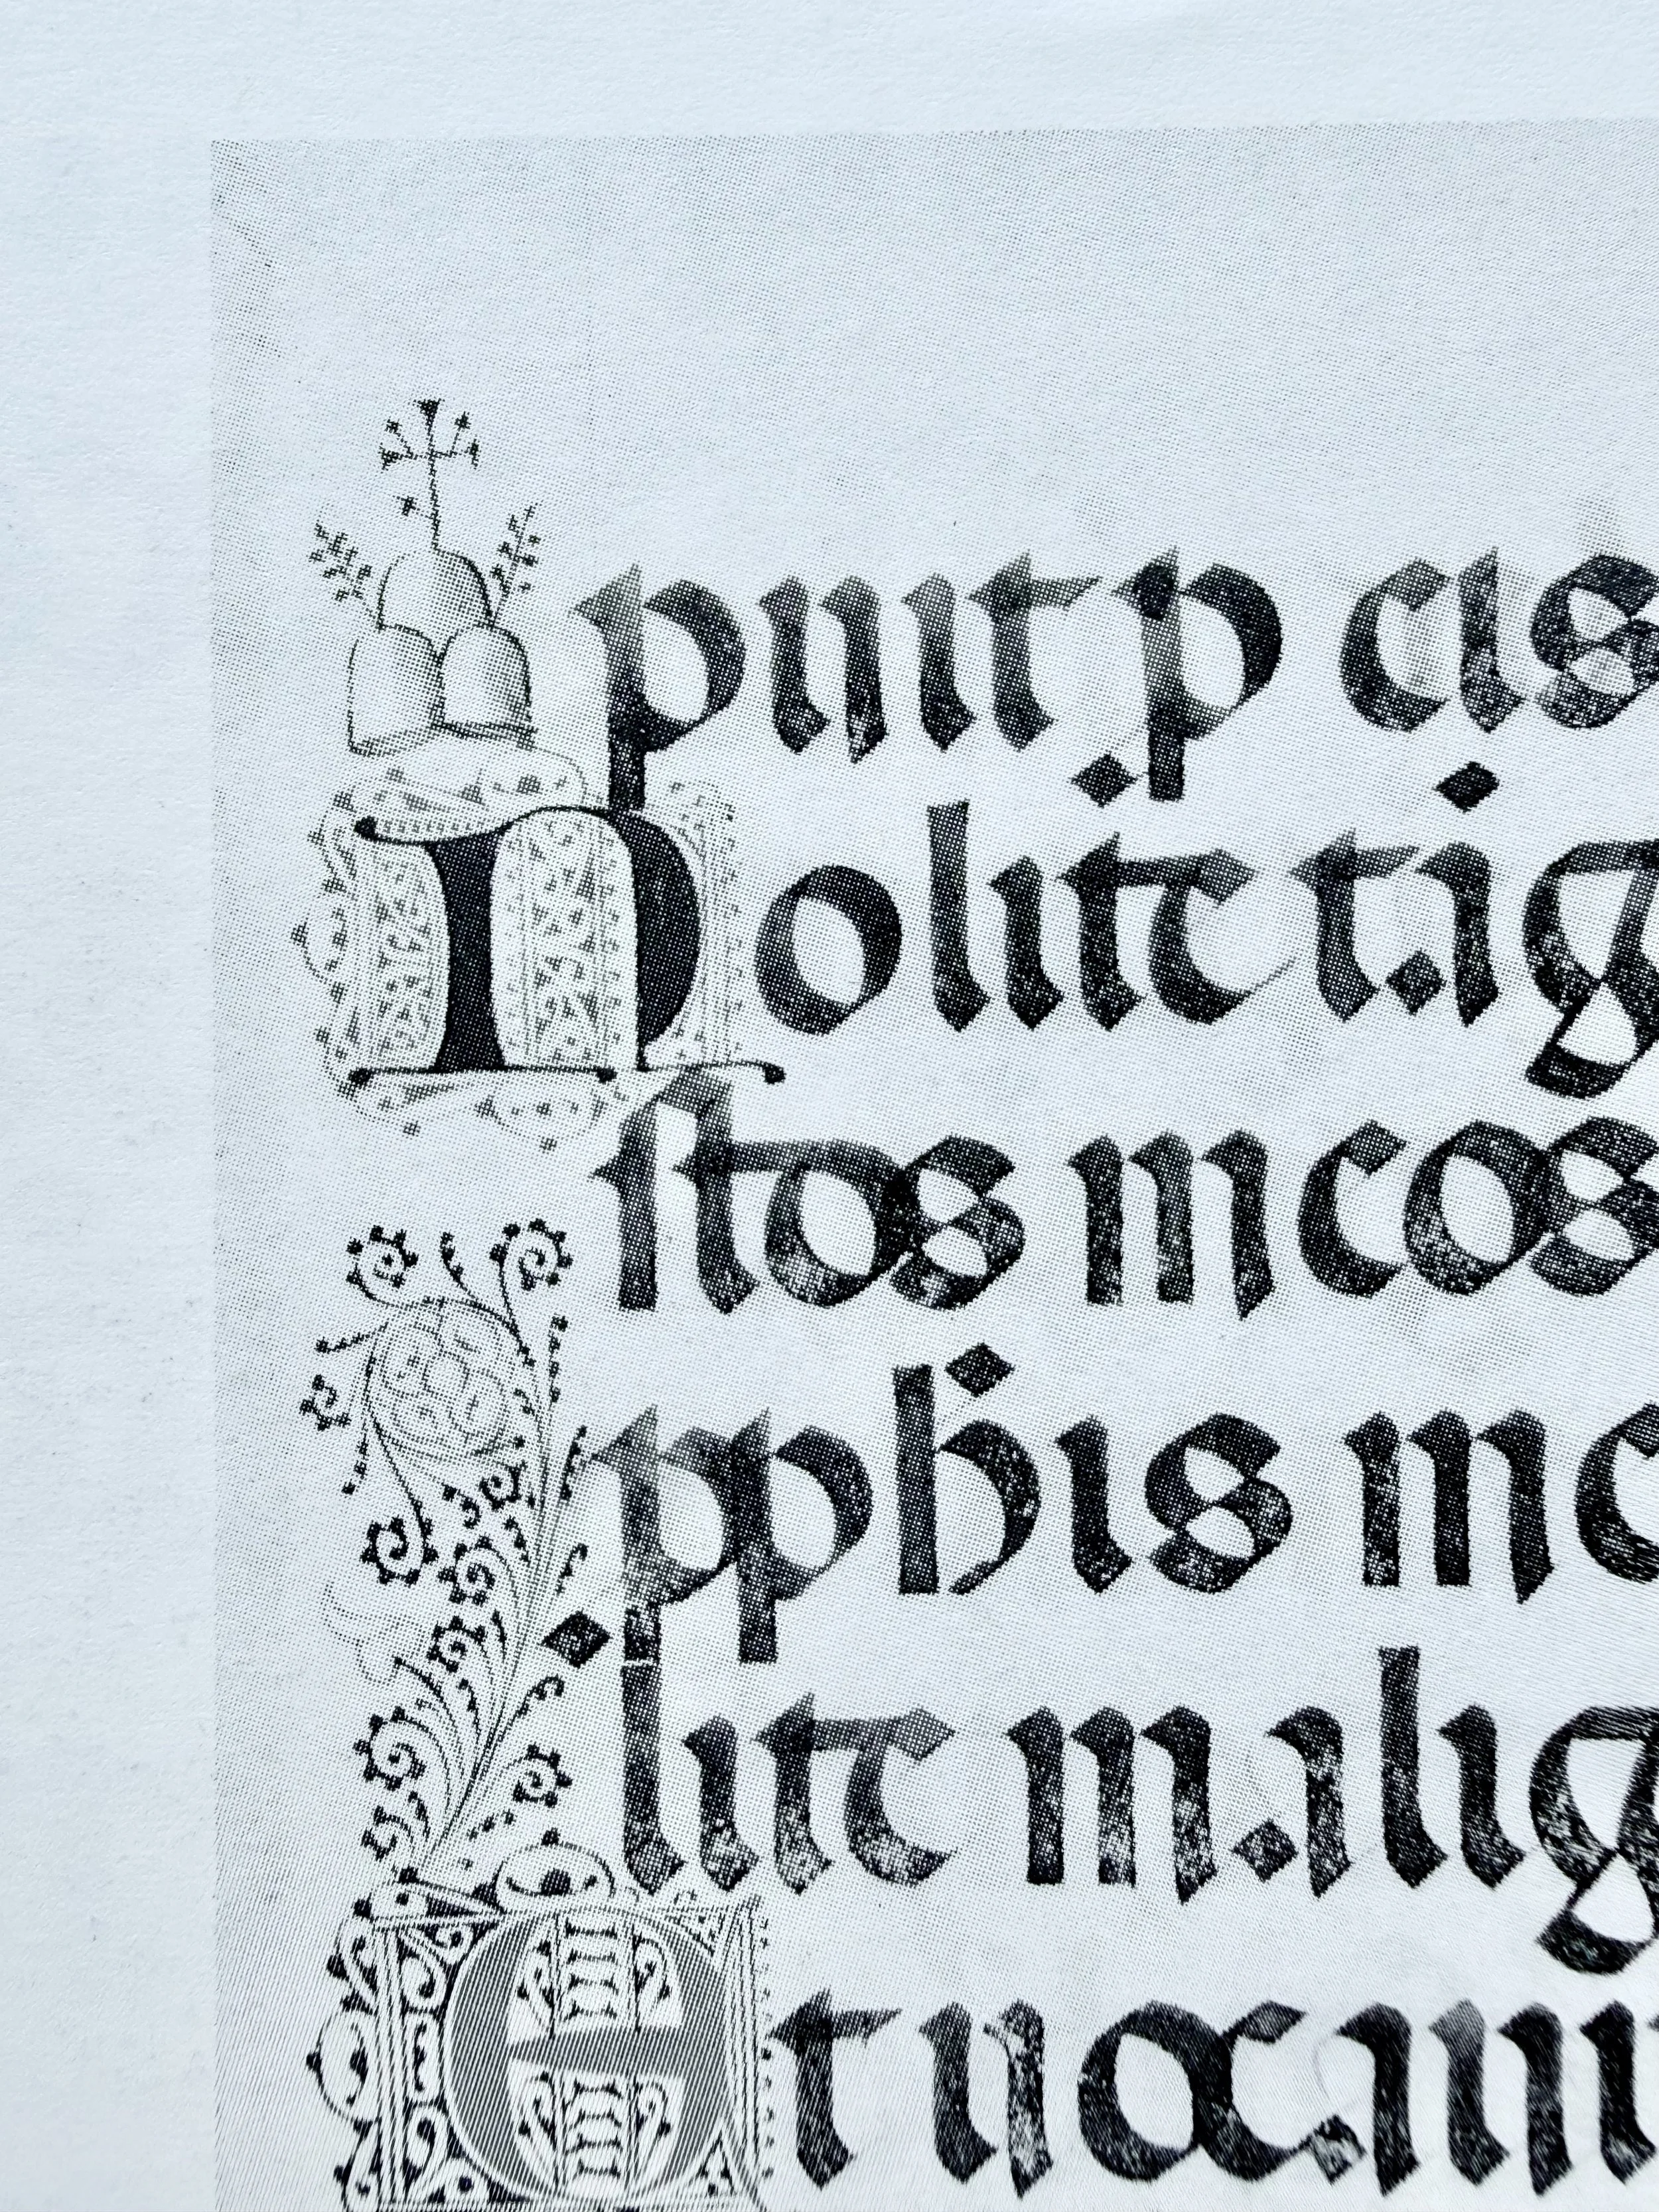 puit p eis
Nolite tag
stos meos
pphis me
lite malig
Et uocaui